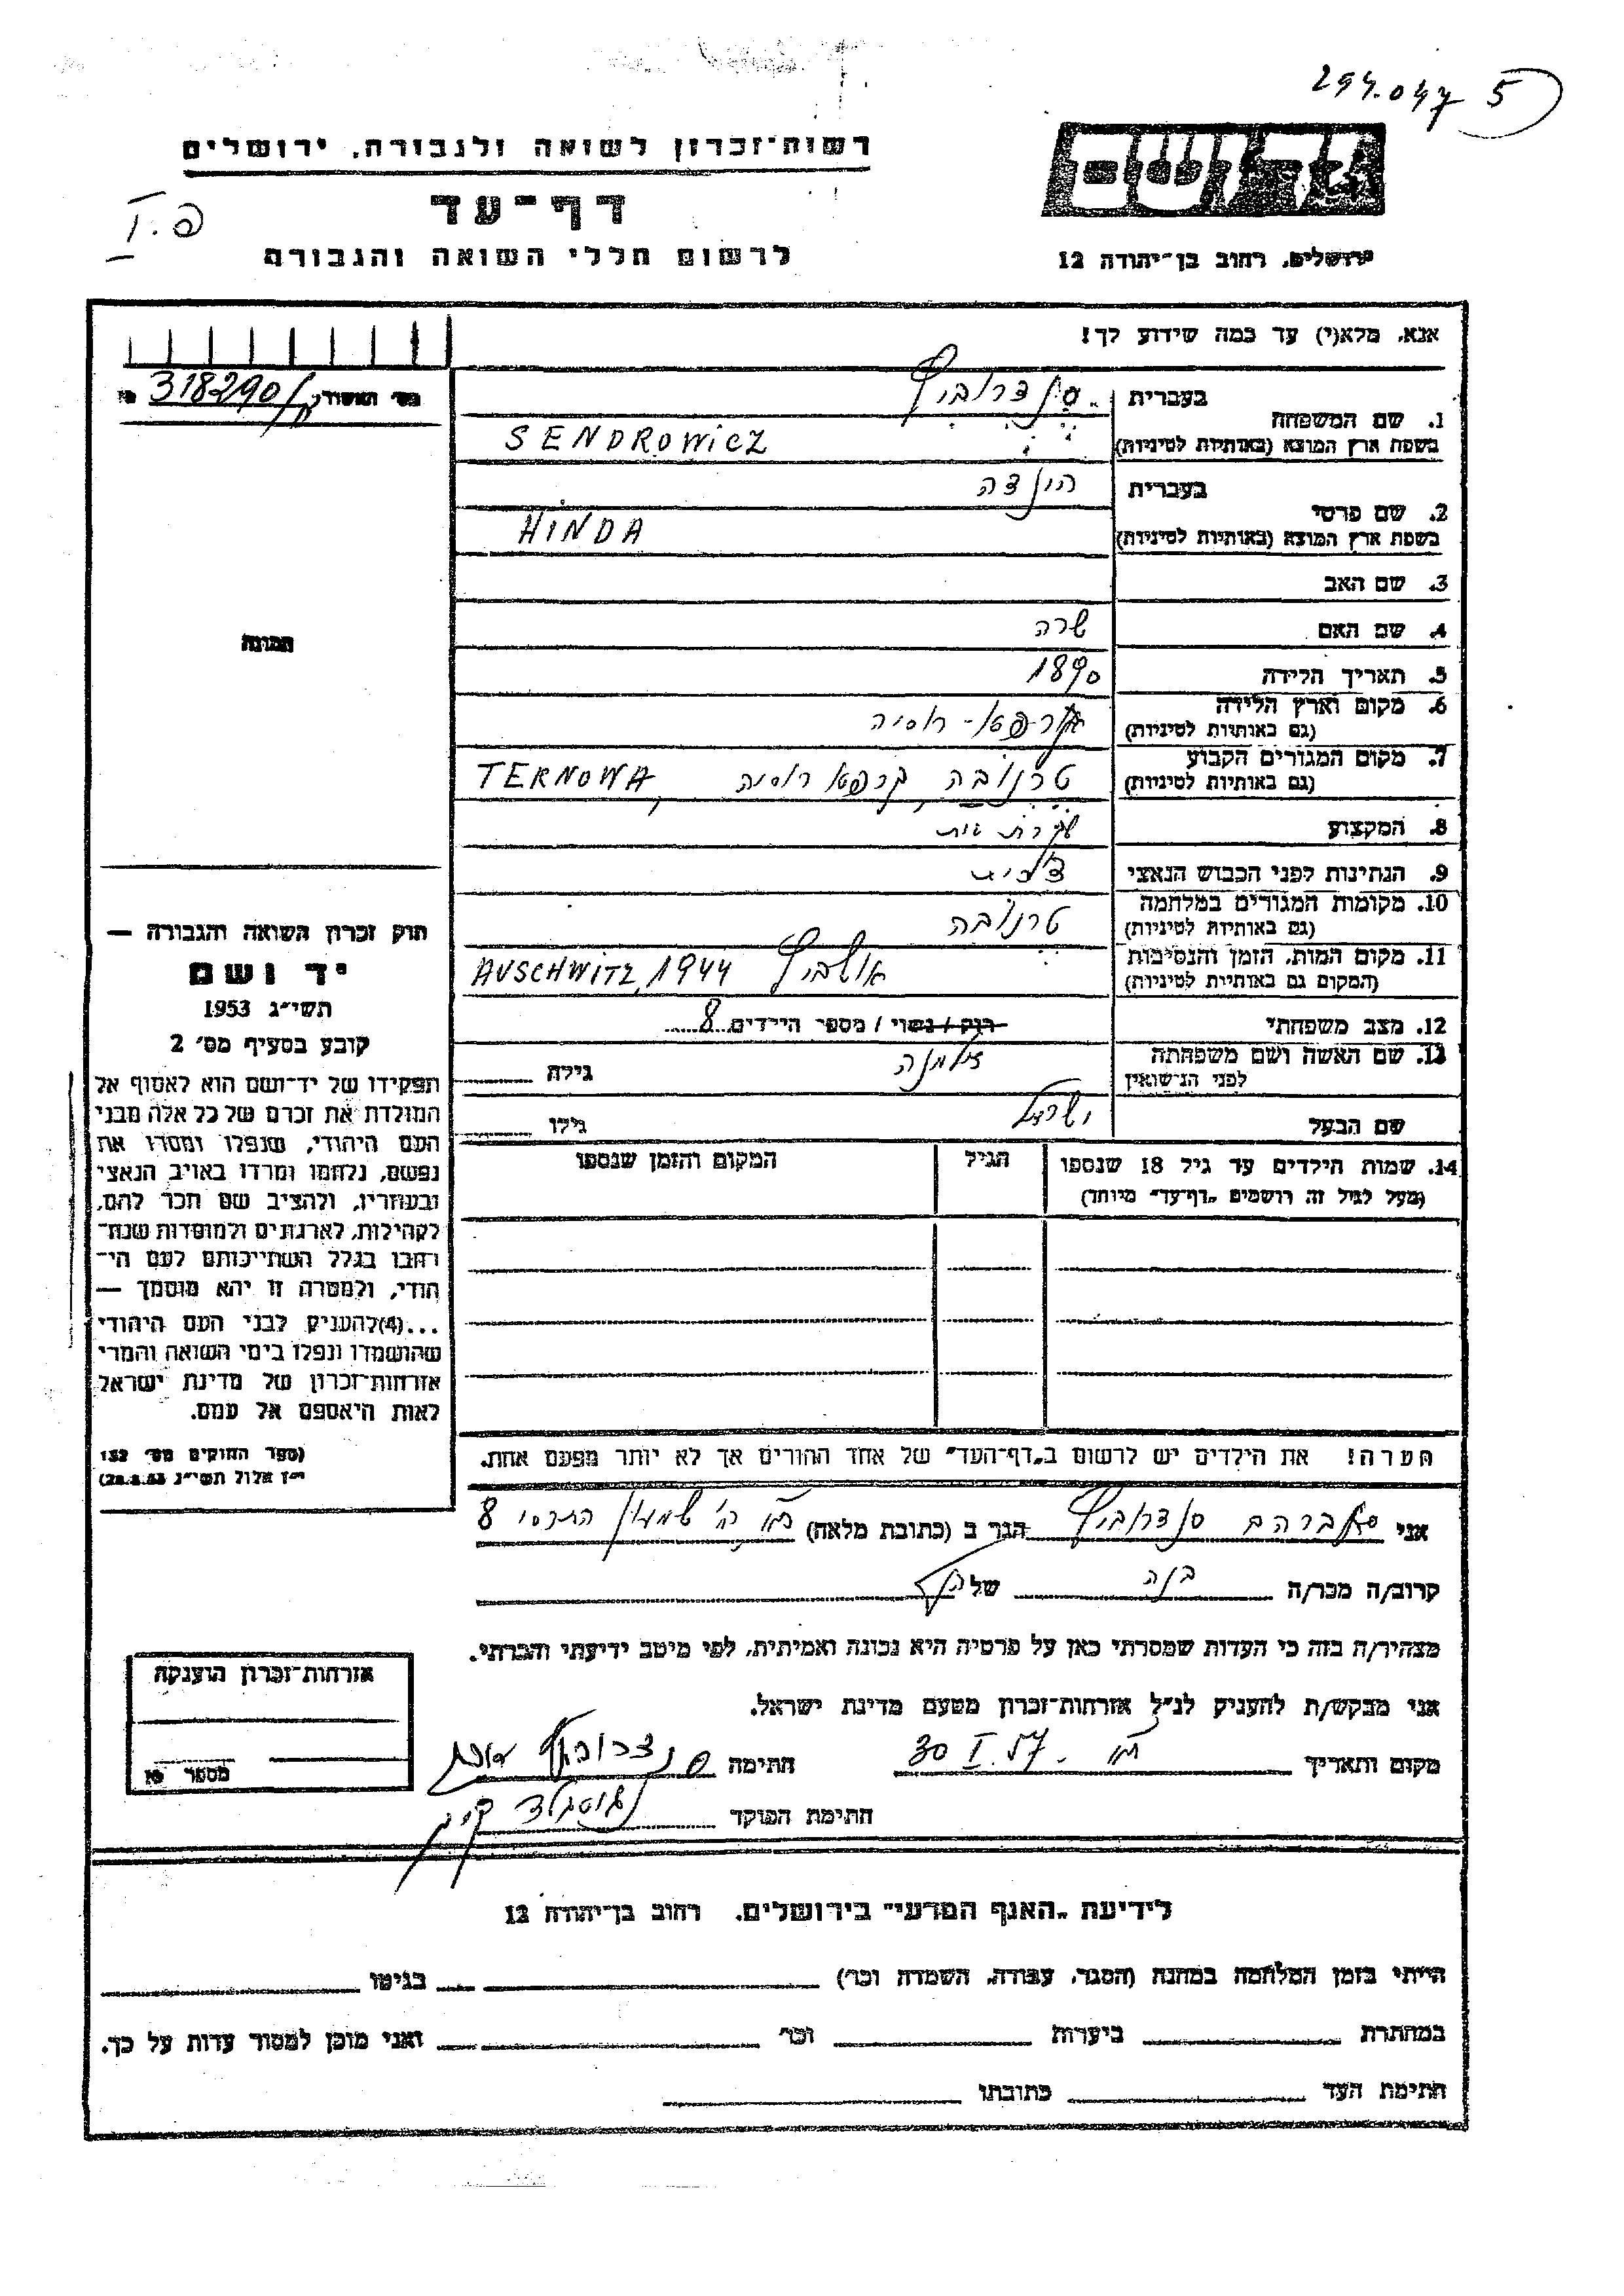 294.047 5
רשות־זכרון לשואה ולגבורה, ירושלים
דף־עד
לרשום חללי השואה והגבורה
ירושלים, רחוב בן־יהודה 12
אנא, מלא(י) עד כמה שידוע לך!
מס' האשור 318290
1. שם המשפחה
בעברית סנדרוביץ
בשפת ארץ המוצא (באותיות לטיניות) SENDROWICZ
2. שם פרטי
בעברית הינדה
בשפת ארץ המוצא (באותיות לטיניות) HINDA
3. שם האב
4. שם האם שרה
5. תאריך הלידה 1890
6. מקום וארץ הלידה קרפטו-רוסיה
(גם באותיות לטיניות)
7. מקום המגורים הקבוע טרנובה קרפטו רוסיה TERNOWA,
(גם באותיות לטיניות)
8. המקצוע עקרת בית
9. הנתינות לפני הכבוש הנאצי צ'כית
10. מקומות המגורים במלחמה טרנובה
(גם באותיות לטיניות)
11. מקום המות, הזמן והנסיבות אושביץ AUSCHWITZ, 1944
(המקום גם באותיות לטיניות)
12. מצב משפחתי רוק / נשוי / מספר הילדים 8
13. שם האשה ושם משפחתה גילה
לפני הנישואין
שם הבעל ישראל גילו
14. שמות הילדים עד גיל 18 שנספו הגיל המקום והזמן שנספו
(מעל לגיל זה רושמים „דף־עד" מיוחד)
הערה! את הילדים יש לרשום ב„דף־העד" של אחד ההורים אך לא יותר מפעם אחת.
תמונה
חוק זכרון השואה והגבורה —
יד ושם
תשי"ג 1953
קובע בסעיף מס' 2
תפקידו של יד־ושם הוא לאסוף אל
המולדת את זכרם של כל אלה מבני
העם היהודי, שנפלו ומסרו את
נפשם, נלחמו ומרדו באויב הנאצי
ובעוזריו, ולהציב שם וזכר להם,
לקהילות, לארגונים ולמוסדות שנח־
רבו בגלל השתייכותם לעם הי־
הודי, ולמטרה זו יהא מוסמך —
...(4)להעניק לבני העם היהודי
שהושמדו ונפלו בימי השואה והמרי
אזרחות־זכרון של מדינת ישראל
לאות היאספם אל עמם.
(ספר החוקים מס' 132
י"ז אלול תשי"ג 28.8.53)
אני אברהם סנדרוביץ הגר ב (כתובת מלאה) שמעון התרסי 8
קרוב/ה מכר/ה בנה של
מצהיר/ה בזה כי העדות שמסרתי כאן על פרטיה היא נכונה ואמיתית, לפי מיטב ידיעתי והכרתי.
אני מבקש/ת להעניק לנ"ל אזרחות־זכרון מטעם מדינת ישראל.
מקום ותאריך ת"א 30 I. 57 חתימה סנדרוביץ
חתימת הפוקד
אזרחות־זכרון הוענקה
מספר
לידיעת „האגף המדעי" בירושלים, רחוב בן־יהודה 12
הייתי בזמן המלחמה במחנה (הסגר, עבודה, השמדה וכו') בגיטו
במחתרת ביערות וכו' ואני מוכן למסור עדות על כך.
חתימת העד כתובתו